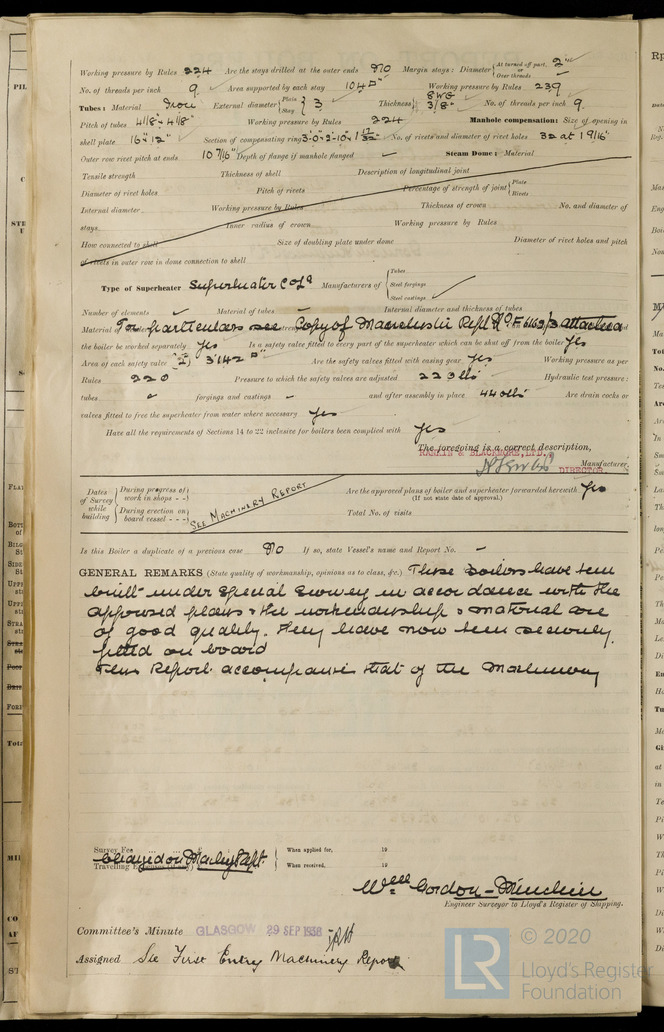 Working pressure by Rules 224 Are the stays drilled at the outer ends No Margin stays: Diameter { At turned off part, or Over threads 2"
No. of threads per inch 9 Area supported by each stay 104 □" Working pressure by Rules 239
Tubes: Material Iron External diameter { Plain Stay 3 Thickness { 8 WG 3/8" No. of threads per inch 9
Pitch of tubes 4 1/8" x 4 1/8" Working pressure by Rules 224 Manhole compensation: Size of opening in
shell plate 16" x 12" Section of compensating ring No. of rivets and diameter of rivet holes 32 at 1 9/16"
Outer row rivet pitch at ends 10 7/16" Depth of flange if manhole flanged – Steam Dome: Material
Tensile strength Thickness of shell Description of longitudinal joint
Diameter of rivet holes Pitch of rivets Percentage of strength of joint { Plate Rivets
Internal diameter Working pressure by Rules Thickness of crown No. and diameter of
stays Inner radius of crown Working pressure by Rules
How connected to shell Size of doubling plate under dome Diameter of rivet holes and pitch
of rivets in outer row in dome connection to shell
Type of Superheater Superheater Co Ld Manufacturers of { Tubes Steel forgings Steel castings
Number of elements Material of tubes Internal diameter and thickness of tubes
Material For particulars see Copy of Manchester Rept attached
the boiler be worked separately Yes Is a safety valve fitted to every part of the superheater which can be shut off from the boiler Yes
Area of each safety valve 3.142 □" Are the safety valves fitted with easing gear Yes Working pressure as per
Rules 220 Pressure to which the safety valves are adjusted 223 lbs Hydraulic test pressure:
tubes forgings and castings – and after assembly in place 440 lbs Are drain cocks or
valves fitted to free the superheater from water where necessary Yes
Have all the requirements of Sections 14 to 22 inclusive for boilers been complied with Yes
The foregoing is a correct description,
RANKIN & BLACKMORE, LTD.
DIRECTOR. Manufacturer.
Dates of Survey while building { During progress of work in shops - - } { During erection on board vessel - - - } SEE MACHINERY REPORT
Are the approved plans of boiler and superheater forwarded herewith Yes
(If not state date of approval.)
Total No. of visits
Is this Boiler a duplicate of a previous case No If so, state Vessel's name and Report No. –
GENERAL REMARKS (State quality of workmanship, opinions as to class, &c.) These Boilers have been
built under special survey in accordance with the
approved plans & the workmanship & material are
of good quality. They have now been securely
fitted on board
This Report accompanies that of the Machinery
Survey Fee
Travelling Expenses
Charged on Machy Rept.
When applied for, 19
When received, 19
Wm Gordon-
Engineer Surveyor to Lloyd's Register of Shipping.
Committee's Minute GLASGOW 29 SEP 1936
Assigned See First Entry Machinery Report
LR © 2020
Lloyd's Register
Foundation